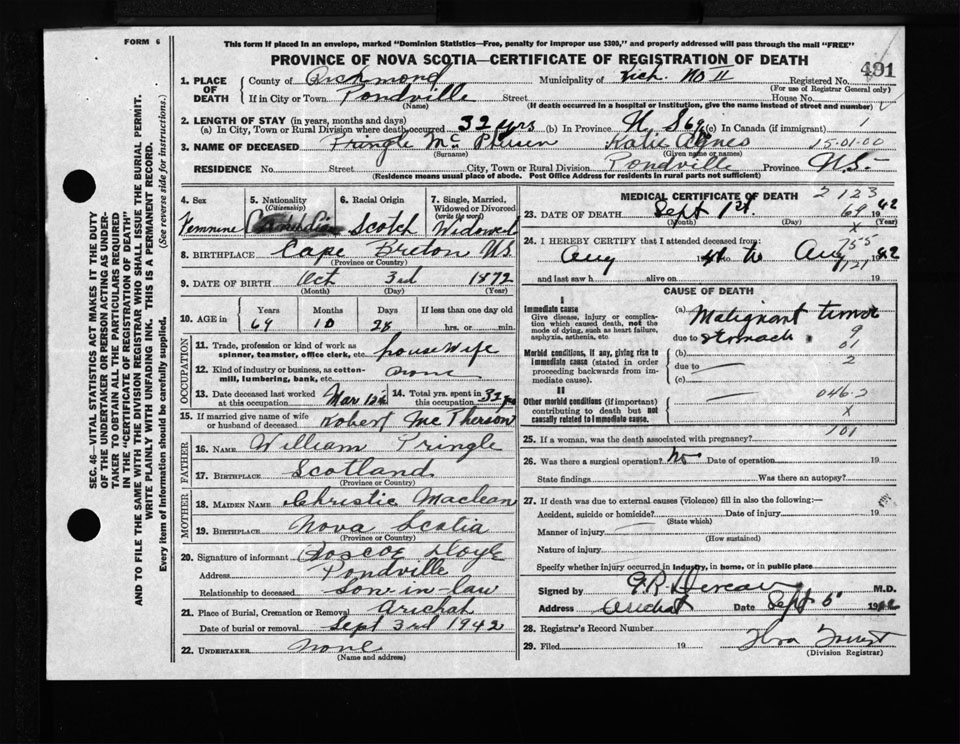 FORM 6
This form if placed in an envelope, marked "Dominion Statistics—Free, penalty for improper use $300," and properly addressed will pass through the mail "FREE"
PROVINCE OF NOVA SCOTIA—CERTIFICATE OF REGISTRATION OF DEATH
491
1. PLACE OF DEATH
County of Richmond Municipality of Rich. No II Registered No.
(For use of Registrar General only)
If in City or Town Pondville Street House No.
(Name) (If death occurred in a hospital or institution, give the name instead of street and number)
2. LENGTH OF STAY (in years, months and days)
(a) In City, Town or Rural Division where death occurred 32 yrs (b) In Province N. S 69 (c) In Canada (if immigrant) 1
3. NAME OF DECEASED Pringle Mc Katie Agnes 15-01-00
(Surname) (Given name or names)
RESIDENCE No. Street City, Town or Rural Division Pondville Province N.S.
(Residence means usual place of abode. Post Office Address for residents in rural parts not sufficient)
4. Sex Femnine
5. Nationality (Citizenship) Canadian
6. Racial Origin Scotch
7. Single, Married, Widowed or Divorced (write the word) Widowed
8. BIRTHPLACE Cape Breton N.S.
(Province or Country)
9. DATE OF BIRTH Oct 3rd 1872
(Month) (Day) (Year)
10. AGE in Years Months Days If less than one day old
69 10 28 hrs. or min.
OCCUPATION
11. Trade, profession or kind of work as spinner, teamster, office clerk, etc. housewife
12. Kind of industry or business, as cotton-mill, lumbering, bank, etc.
13. Date deceased last worked at this occupation Mar.
14. Total yrs. spent in this occupation 32
15. If married give name of wife or husband of deceased Robert McPherson
FATHER
16. NAME William Pringle
17. BIRTHPLACE Scotland
(Province or Country)
MOTHER
18. MAIDEN NAME Christie Maclean
19. BIRTHPLACE Nova Scotia
(Province or Country)
20. Signature of informant Roscoe Doyle
Address Pondville
Relationship to deceased Son-in-law
21. Place of Burial, Cremation or Removal Arichat
Date of burial or removal Sept 3rd 1942
22. UNDERTAKER None
(Name and address)
MEDICAL CERTIFICATE OF DEATH
2 123
23. DATE OF DEATH Sept 1st. 69 1942
(Month) (Day)
24. I HEREBY CERTIFY that I attended deceased from:
Aug to Aug 1942
and last saw h alive on 19
CAUSE OF DEATH
I
Immediate cause
Give disease, injury or complication which caused death, not the mode of dying, such as heart failure, asphyxia, asthenia, etc
(a) Malignant tumor
due to stomach
Morbid conditions, if any, giving rise to immediate cause (stated in order proceeding backwards from immediate cause).
(b)
due to
(c)
II
Other morbid conditions (if important) contributing to death but not causally related to immediate cause
046-2
X
101
25. If a woman, was the death associated with pregnancy?
26. Was there a surgical operation? No Date of operation 19
State findings Was there an autopsy?
27. If death was due to external causes (violence) fill in also the following:—
Accident, suicide or homicide? Date of injury 19
(State which)
Manner of injury
(How sustained)
Nature of injury
Specify whether injury occurred in industry, in home, or in public place
Signed by M.D.
Address Arichat Date Sept 5 1942
28. Registrar's Record Number
29. Filed 19
(Division Registrar)
SEC. 46—VITAL STATISTICS ACT MAKES IT THE DUTY
OF THE UNDERTAKER OR PERSON ACTING AS UNDER-
TAKER TO OBTAIN ALL THE PARTICULARS REQUIRED
IN THE "CERTIFICATE OF REGISTRATION OF DEATH"
AND TO FILE THE SAME WITH THE DIVISION REGISTRAR WHO SHALL ISSUE THE BURIAL PERMIT.
WRITE PLAINLY WITH UNFADING INK. THIS IS A PERMANENT RECORD.
Every item of information should be carefully supplied. (See reverse side for instructions.)